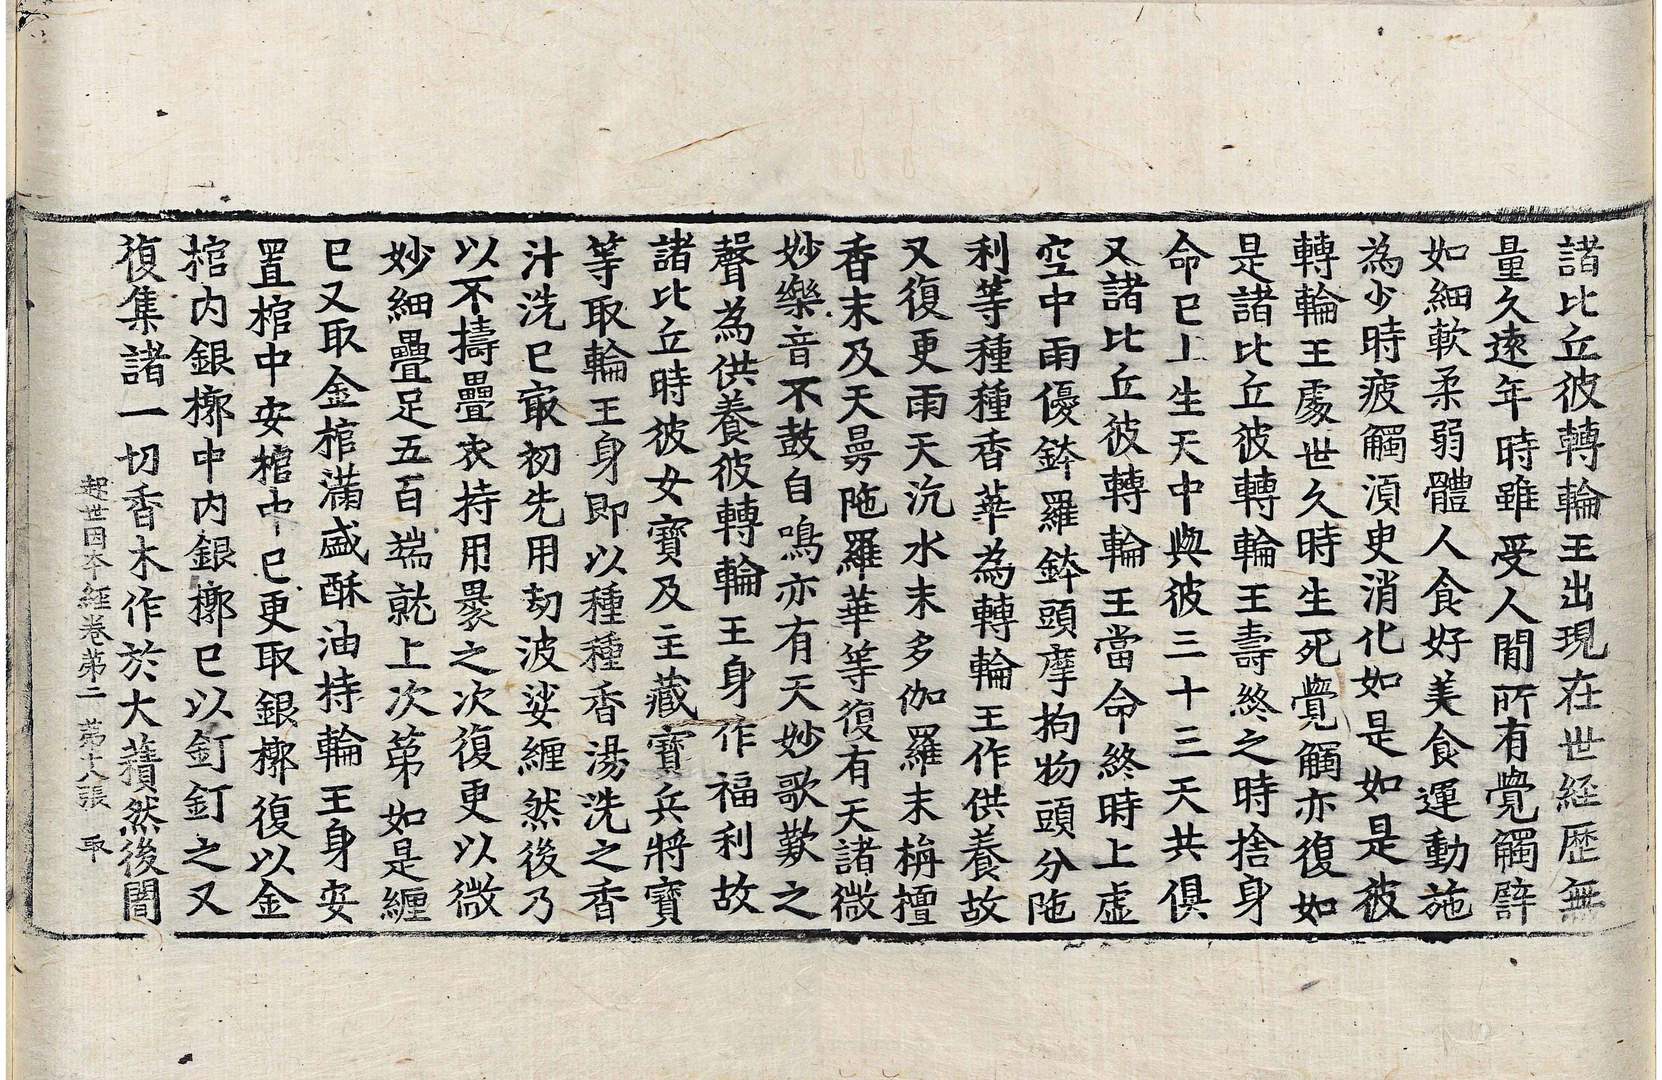 諸比丘彼轉輪王出現在世経歷無
量久遠年時雖受人間所有覺觸譬
如細軟柔弱體人食好美食運動施
為少時疲觸湏叟消化如是如是彼
轉輪王處世久時生死覺觸亦復如
是諸比丘彼轉輪王壽終之時捨身
命已上生天中與彼三十三天共俱
又諸比丘彼轉輪王當命終時上虛
空中雨優鉢羅鉢頭摩拘物頭分陁
利等種種香華為轉輪王作供養故
又復更雨天沉水末多伽羅末栴檀
香末及天曼陁羅華等復有天諸微
妙樂音不鼓自鳴亦有天妙歌歎之
聲為供養彼轉輪王身作福利故
諸比丘時彼女寶及主藏寶兵將寶
等取輪王身即以種種香湯洗之香
汁洗已㝡初先用劫波娑纏然後乃
以不擣疊衣持用褁之次復更以微
妙細疊足五百端就上次第如是纏
已又取金棺滿盛酥油持輪王身安
置棺中安棺中已更取銀槨復以金
棺内銀槨中内銀槨已以釘釘之又
復集諸一切香木作於大𧂐然後闍
起世因本經卷第二 第十八張 取